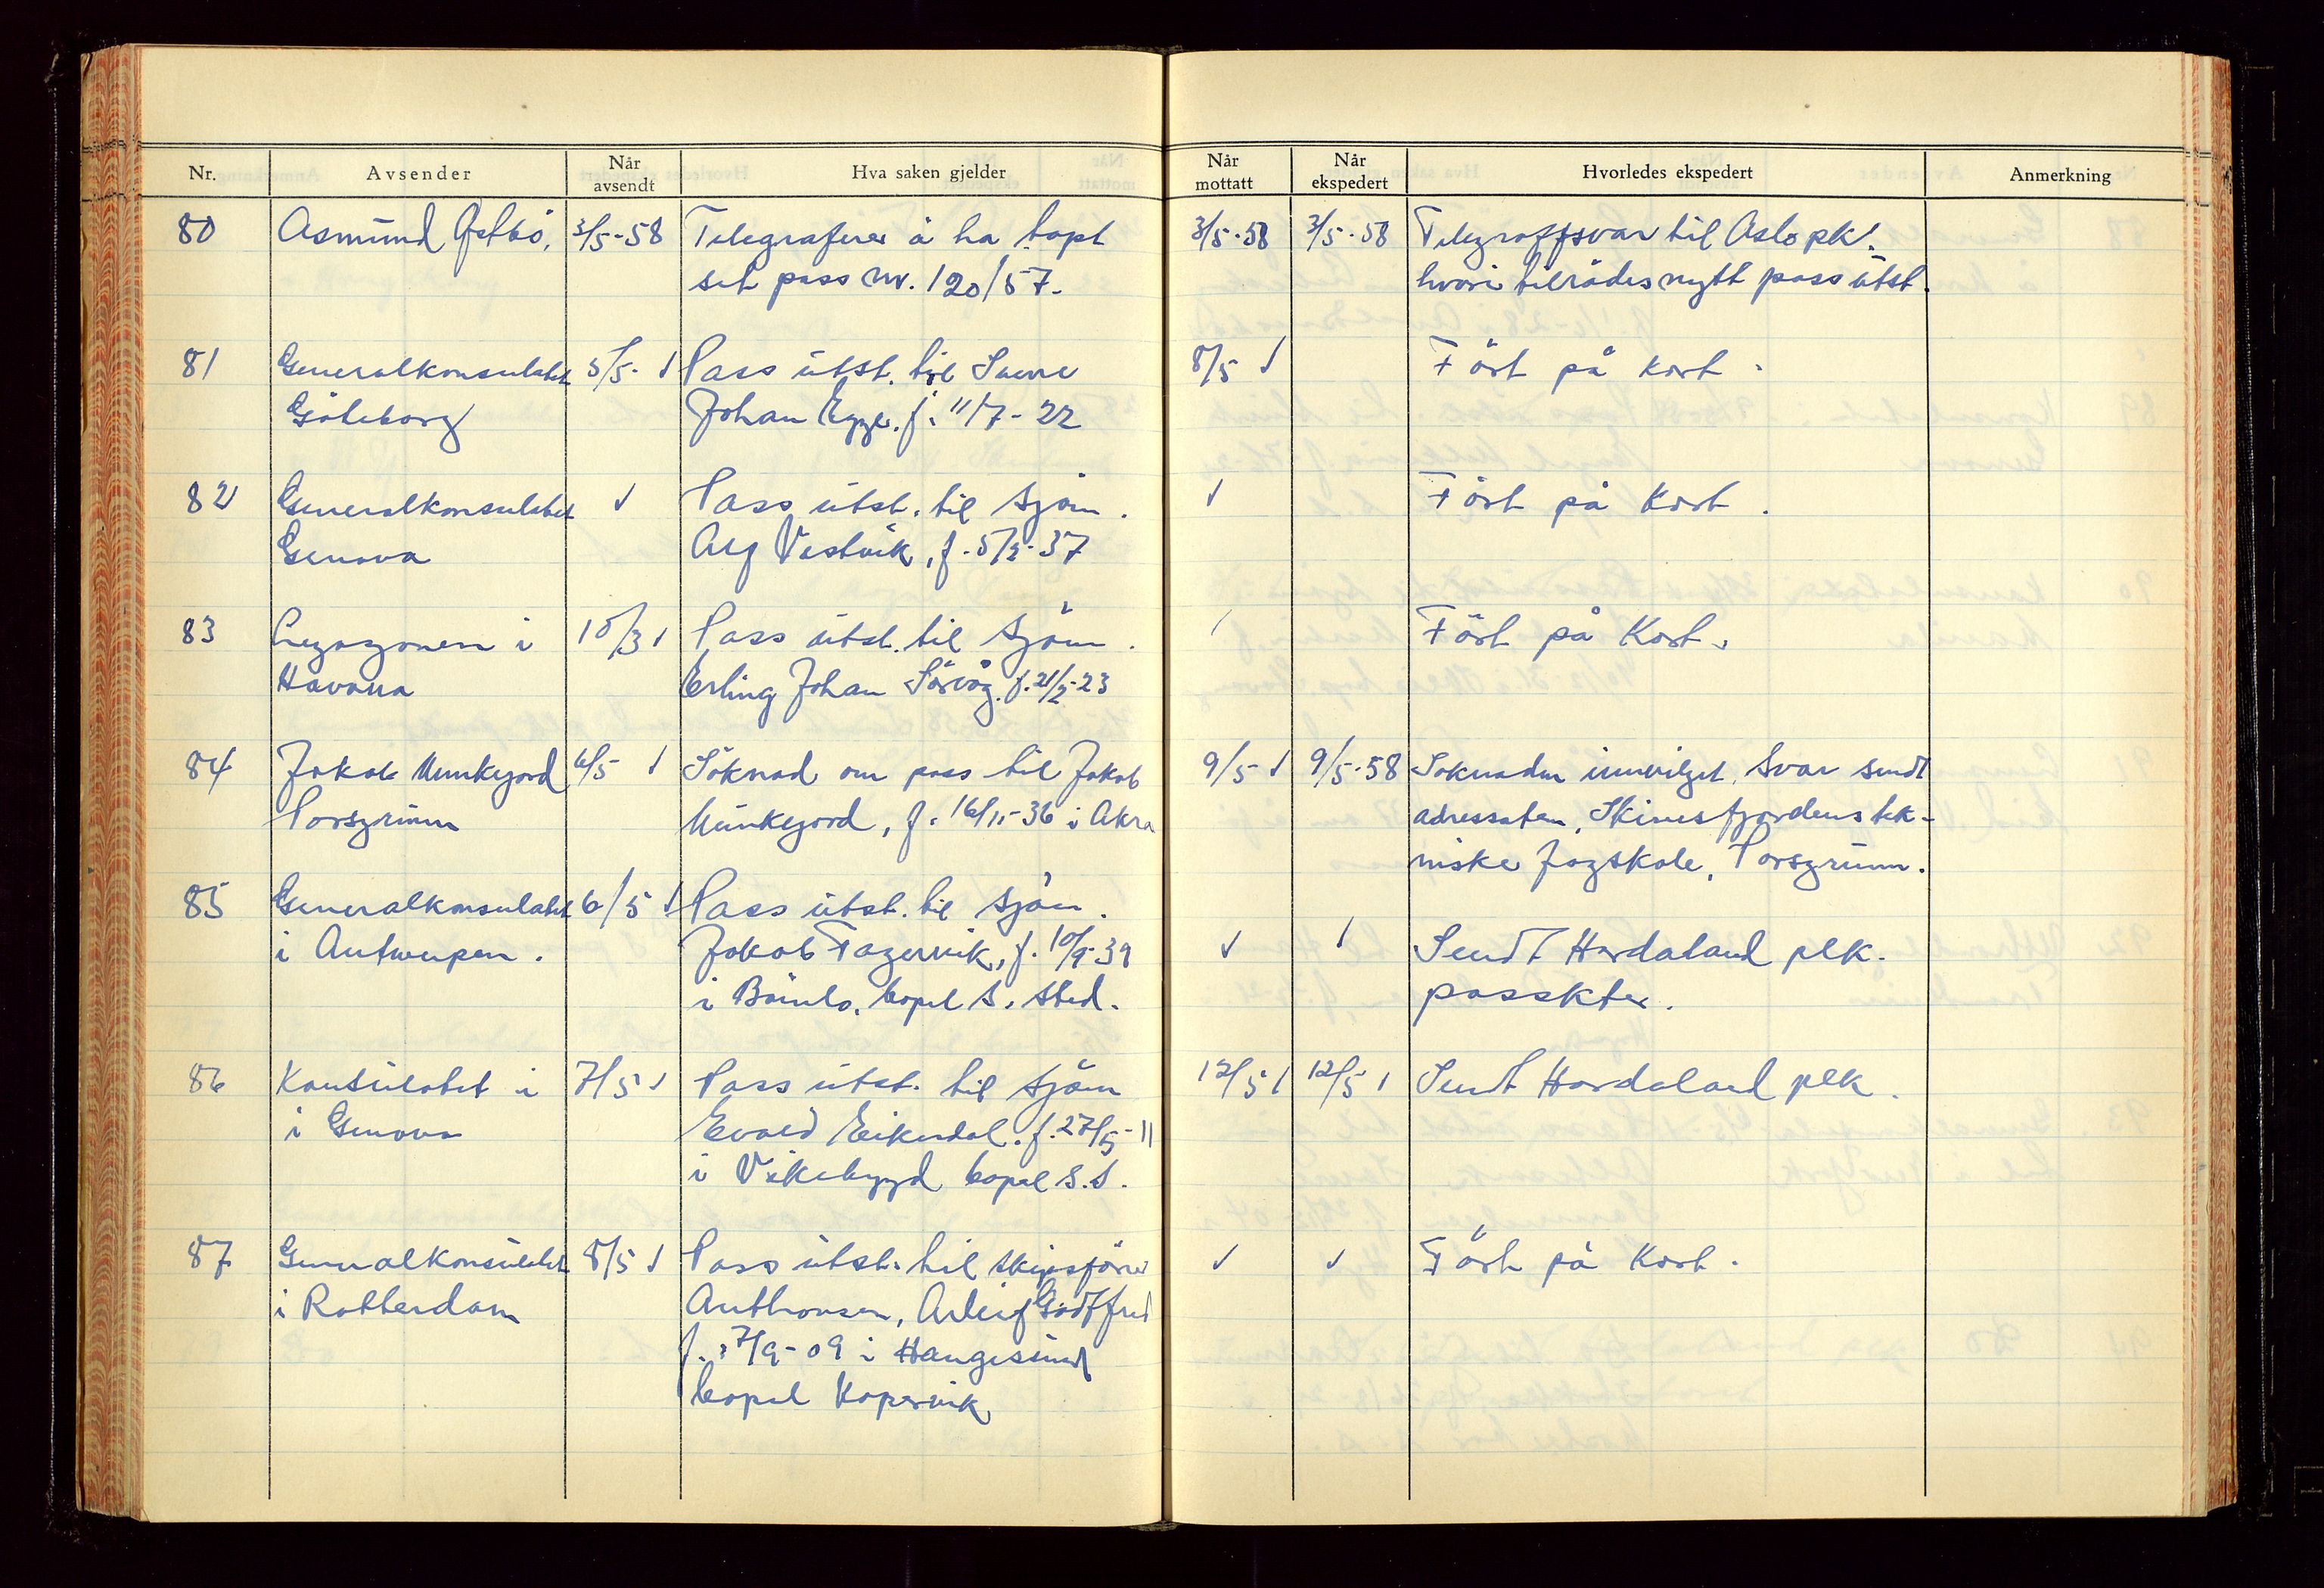 Nr. Avsender Når avsendt Hva saken gjelder Når mottatt Når ekspedert Hvorledes ekspedert Anmerkning
80 Asmund Østbö, 3/5-58 Telegraferer å ha tapt 3/5-58 3/5-58 Telegrafsvar til Oslo pk.
sit pass nr. 120/57. hvori tilrådes nytt pass utst.
81 Generalkonsulatet 5/5- √ Pass utst. til Sverre 8/5 √ Fört på kort.
Göteborg Johan Egge. f. 11/7-22
82 Generalkonsulatet √ Pass utst. til sjöm. √ Fört på kort.
Genova Alf Vestvik, f. 5/2-37
83 Legasjonen i 10/3 √ Pass utst. til sjöm. √ Fört på Kort.
Havana Erling Johan Sörvåg. f. 21/2-23
84 Jakob Munkejord 6/5 √ Söknad om pass til Jakob 9/5 √ 9/5-58 Söknaden innvilget. Svar sendt
Porsgrunn Munkejord, f. 16/11-36 i Åkra adressaten, Skiensfjordens tek-
niske fagskole, Porsgrunn.
85 Generalkonsulatet 6/5 √ Pass utst. til sjöm.
i Antwerpen. Jakob Fagervik, f. 10/9-39 √ √ Sendt Hordaland plk.
i Bömlo, bopel s. sted. passkter.
86 Konsulatet i 7/5 √ Pass utst. til sjöm 12/5 √ 12/5 √ Sendt Hordaland plk.
i Genova Evald Eikesdal. f. 27/5-11
i Vikebygd bopel s.s.
87 Generalkonsulatet 8/5 √ Pass utst. til skipsförer √ √ Fört på Kort.
i Rotterdam Anthonsen, Arleif Godtfred
f. 27/9-09 i Haugesund
bopel Kopervik